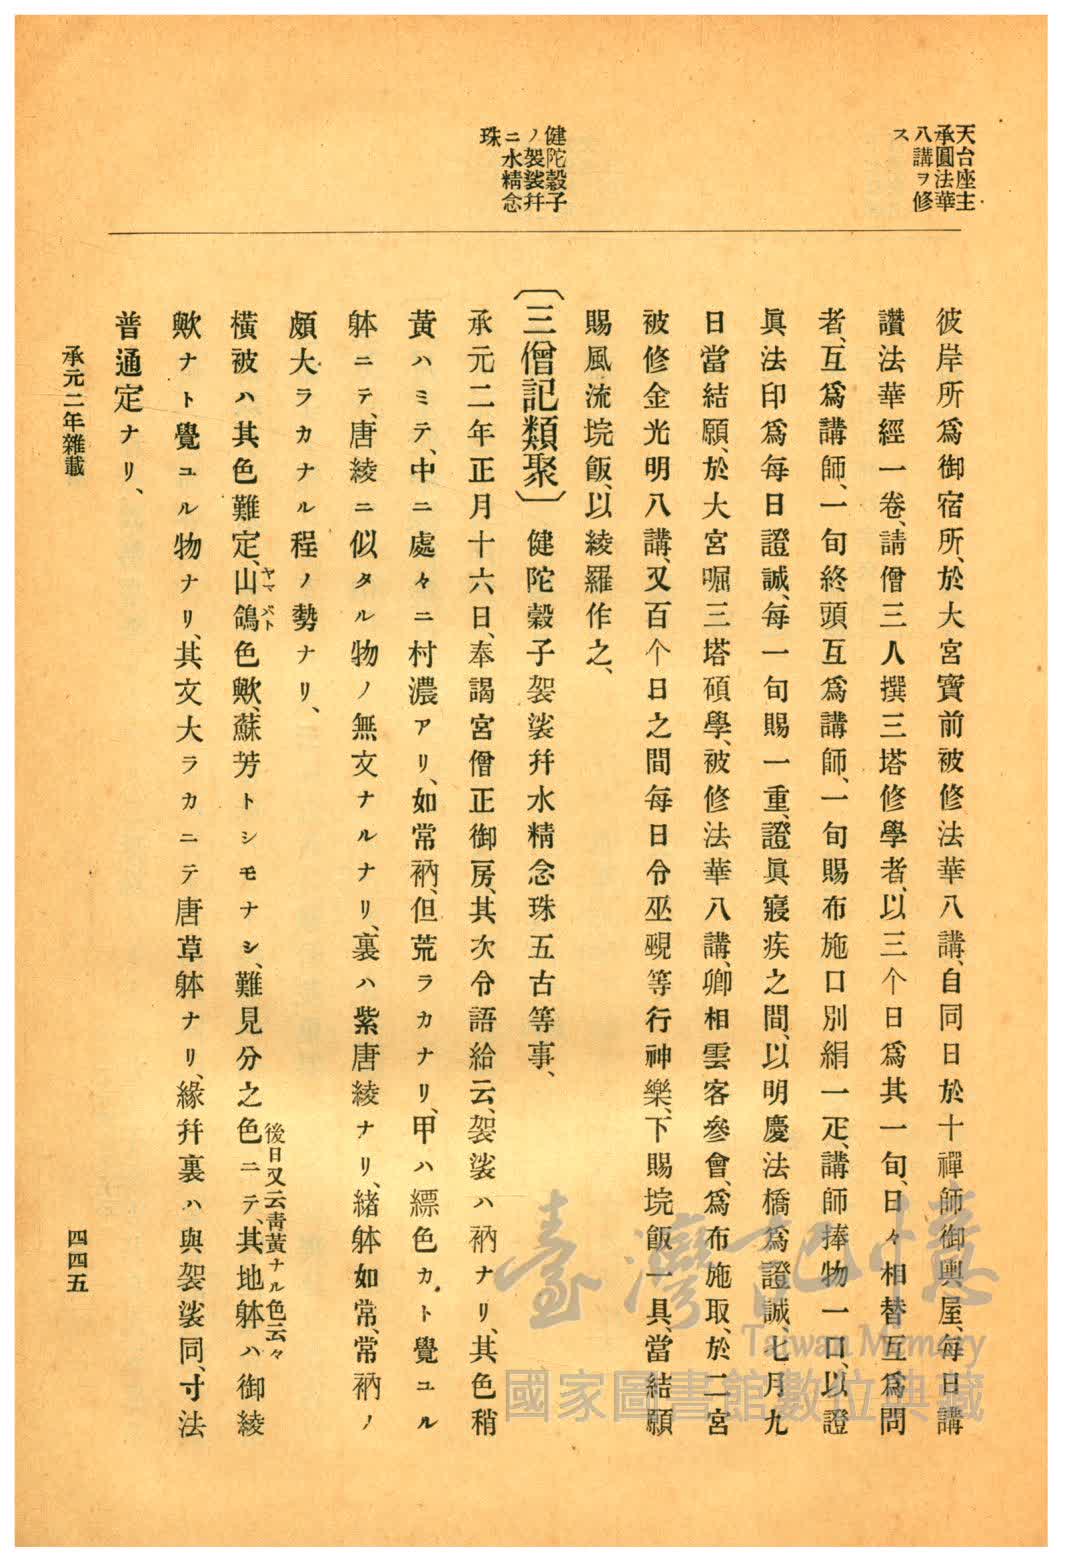 天台座主
承圓法華
八講ヲ修
ス
健陀穀子
ノ袈裟幷
ニ水精念
珠
彼岸所爲御宿所、於大宮寶前被修法華八講、自同日於十禪師御輿屋、每日講
讚法華經一卷、請僧三人撰三塔修學者、以三个日爲其一旬、日々相替互爲問
者、互爲講師、一旬終頭互爲講師、一旬賜布施口別絹一疋、講師捧物一口、以證
眞法印爲每日證誠、每一旬賜一重、證眞寢疾之間、以明慶法橋爲證誠、七月九
日當結願、於大宮啒三塔碩學、被修法華八講、卿相雲客參會、爲布施取、於二宮
被修金光明八講、又百个日之間每日令巫覡等行神樂、下賜垸飯一具、當結願
賜風流垸飯、以綾羅作之、
〔三僧記類聚〕健陀穀子袈裟幷水精念珠五古等事、
承元二年正月十六日、奉謁宮僧正御房、其次令語給云、袈裟ハ衲ナリ、其色稍
黃ハミテ、中ニ處々ニ村濃アリ、如常衲、但荒ラカナリ、甲ハ縹色カト覺ユル
躰ニテ、唐綾ニ似タル物ノ無文ナルナリ、裏ハ紫唐綾ナリ、緖躰如常、常衲ノ
頗大ラカナル程ノ勢ナリ、
橫被ハ其色難定、山鴿色歟、蘇芳トシモナシ、難見分之色ニテ、其地躰ハ御綾
ヤマバト
後日又云靑黃ナル色云々
歟ナト覺ユル物ナリ、其文大ラカニテ唐草躰ナリ、緣幷裏ハ與袈裟同、寸法
普通定ナリ、
承元二年雜載
四四五
臺灣記憶
Taiwan Memory
國家圖書館數位典藏